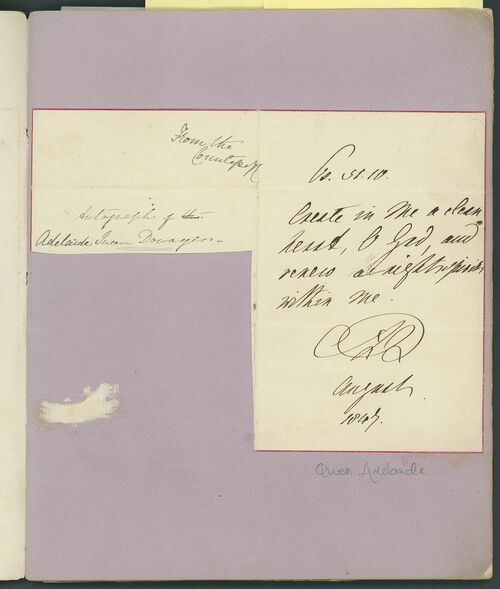 From the
Countess of
Autograph of the
Adelaide Queen Dowager.
Ps. 51.10.
Create in me a clean
heart, O God, and
renew a right spirit
within me.
AR
August
1847.
Queen Adelaide